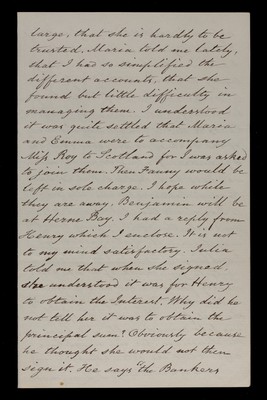 large, that she is hardly to be
trusted. Maria told me lately,
that I had so simplified the
different accounts, that she
found but little difficulty in
managing them. I understood
it was quite settled that Maria
and Emma were to accompany
Miss Roy to Scotland for I was asked
to join them. Then Fanny would be
left in sole charge. I hope while
they are away. Benjamin will be
at Herne Bay. I had a reply from
Henry which I enclose. It is not
to my mind satisfactory. Julia
told me that when she signed,
she understood it was for Henry
to obtain the Interest. Why did he
not tell her it was to obtain the
principal sum? Obviously because
he thought she would not then
sign it. He says "the Bankers